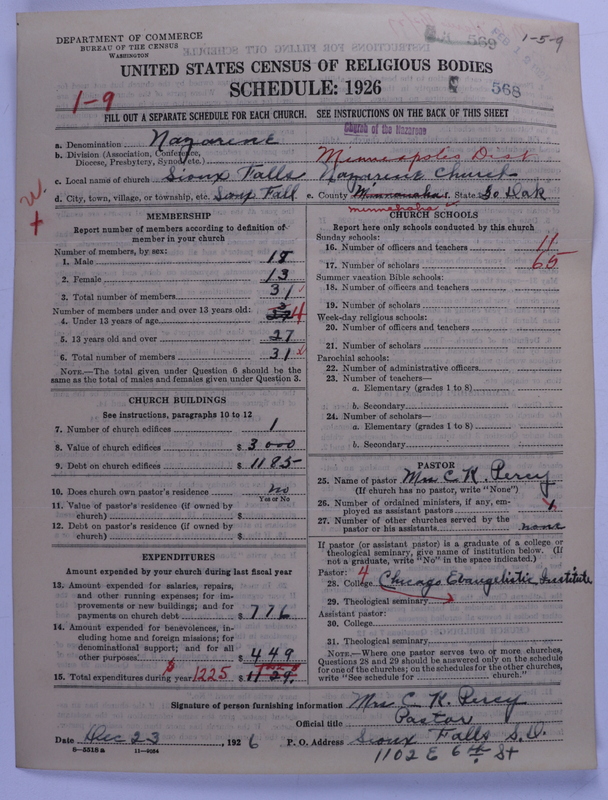 DEPARTMENT OF COMMERCE
BUREAU OF THE CENSUS
WASHINGTON
569
1-5-9
UNITED STATES CENSUS OF RELIGIOUS BODIES
SCHEDULE: 1926
568
1-9
FILL OUT A SEPARATE SCHEDULE FOR EACH CHURCH. SEE INSTRUCTIONS ON THE BACK OF THIS SHEET
Church of the Nazarene
a. Denomination Nazarene
b. Division (Association, Conference, Diocese, Presbytery, Synod, etc.) Minneapolis Dist
c. Local name of church Sioux Falls Nazarene Church
d. City, town, village, or township, etc. Soux Fall e. County Minnauaha f. State So Dak
minnehaha
MEMBERSHIP
Report number of members according to definition of member in your church
Number of members, by sex:
1. Male 18
2. Female 13
3. Total number of members 31
Number of members under and over 13 years old:
4. Under 13 years of age 4
5. 13 years old and over 27
6. Total number of members 31
NOTE.—The total given under Question 6 should be
same as the total of males and females given under Question 3.
CHURCH BUILDINGS
See instructions, paragraphs 10 to 12
7. Number of church edifices 1
8. Value of church edifices $ 3000
9. Debt on church edifices $ 1185
10. Does church own pastor's residence no
Yes or No
11. Value of pastor's residence (if owned by
church) $
12. Debt on pastor's residence (if owned by
church) $
EXPENDITURES
Amount expended by your church during last fiscal year
13. Amount expended for salaries, repairs,
and other running expenses; for im-
provements or new buildings; and for
payments on church debt $ 776
14. Amount expended for benevolences, in-
cluding home and foreign missions; for
denominational support; and for all
other purposes $ 449
15. Total expenditures during year $ 1225
CHURCH SCHOOLS
Report here only schools conducted by this church
Sunday schools:
16. Number of officers and teachers 11
17. Number of scholars 65
Summer vacation Bible schools:
18. Number of officers and teachers
19. Number of scholars
Week-day religious schools:
20. Number of officers and teachers
21. Number of scholars
Parochial schools:
22. Number of administrative officers
23. Number of teachers—
a. Elementary (grades 1 to 8)
b. Secondary
24. Number of scholars—
a. Elementary (grades 1 to 8)
b. Secondary
PASTOR
25. Name of pastor Mrs C. K. Percy
(If church has no pastor, write "None")
26. Number of ordained ministers, if any, em-
ployed as assistant pastors 1
27. Number of other churches served by the
pastor or his assistants none
If pastor (or assistant pastor) is a graduate of a college or
theological seminary, give name of institution below. (If
not a graduate, write "No" in the space indicated.)
Pastor: 4
28. College Chicago Evangelistic Institute
29. Theological seminary
Assistant pastor:
30. College
31. Theological seminary
NOTE.—Where one pastor serves two or more churches,
Questions 28 and 29 should be answered only on the schedule
for one of the churches; on the schedules for the other churches,
write "See schedule for church."
Signature of person furnishing information Mrs C. K. Percy
Official title Pastor
Date Dec 23, 1926 P. O. Address Sioux Falls S.D.
8-5318a 11-9054 1102 E 6th St